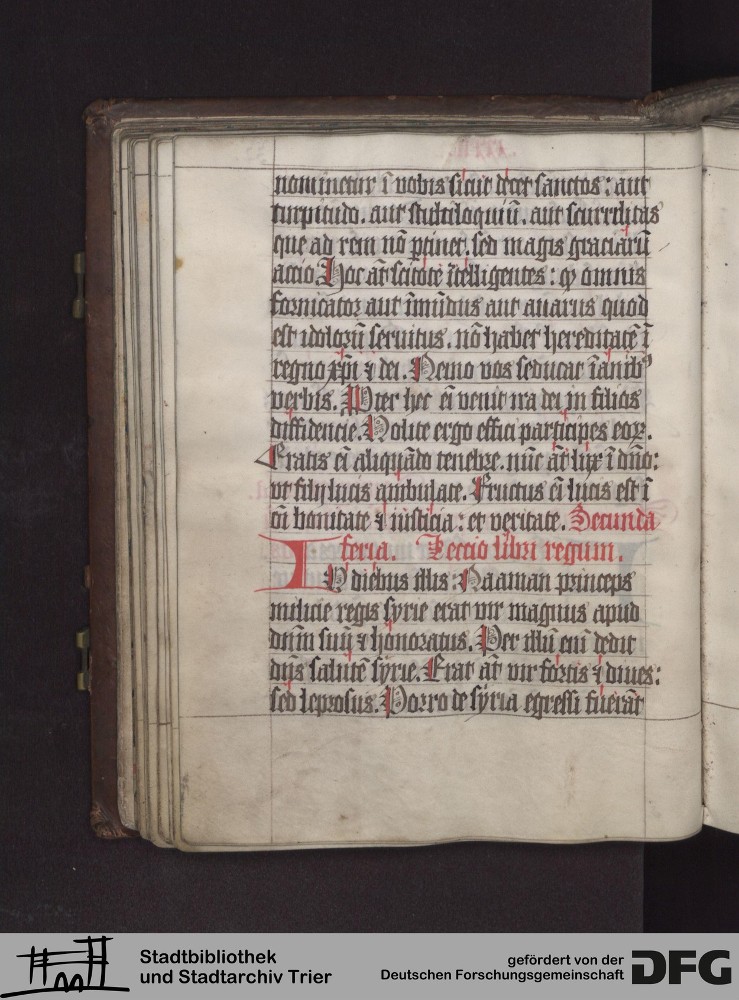 nominetur ī vobis sicut decet sanctos : aut
turpitudo . aut stultiloquiū . aut scurrilitas
que ad rem nō ꝑtinet . sed magis graciarū
accio . Hoc aūt scitote ītelligentes : ꝙ omnis
fornicator aut īmūdus aut auarus quod
est idolorū seruitus . nō habet hereditatē ī
regno xp̄i ⁊ dei . Nemo vos seducat īanibꝰ
verbis . Pter hec eī venit ira dei in filios
diffidencie . Nolite ergo effici participes eoꝝ .
Eratis eī aliquādo tenebre . nūc āt lux ī dn̄o :
vt filij lucis ambulate . Fructus eī lucis est ī
oī bonitate ⁊ iusticia : et veritate . Secunda
feria . Leccio libri regum .
IN diebus illis : Naaman princeps
milicie regis syrie erat vir magnus apud
dn̄m suū ⁊ honoratus . Per illū enī dedit
dn̄s salutē syrie . Erat āt vir fortis ⁊ diues :
sed leprosus . Porro de syria egressi fuerāt
Stadtbibliothek
und Stadtarchiv Trier
gefördert von der
Deutschen Forschungsgemeinschaft
DFG